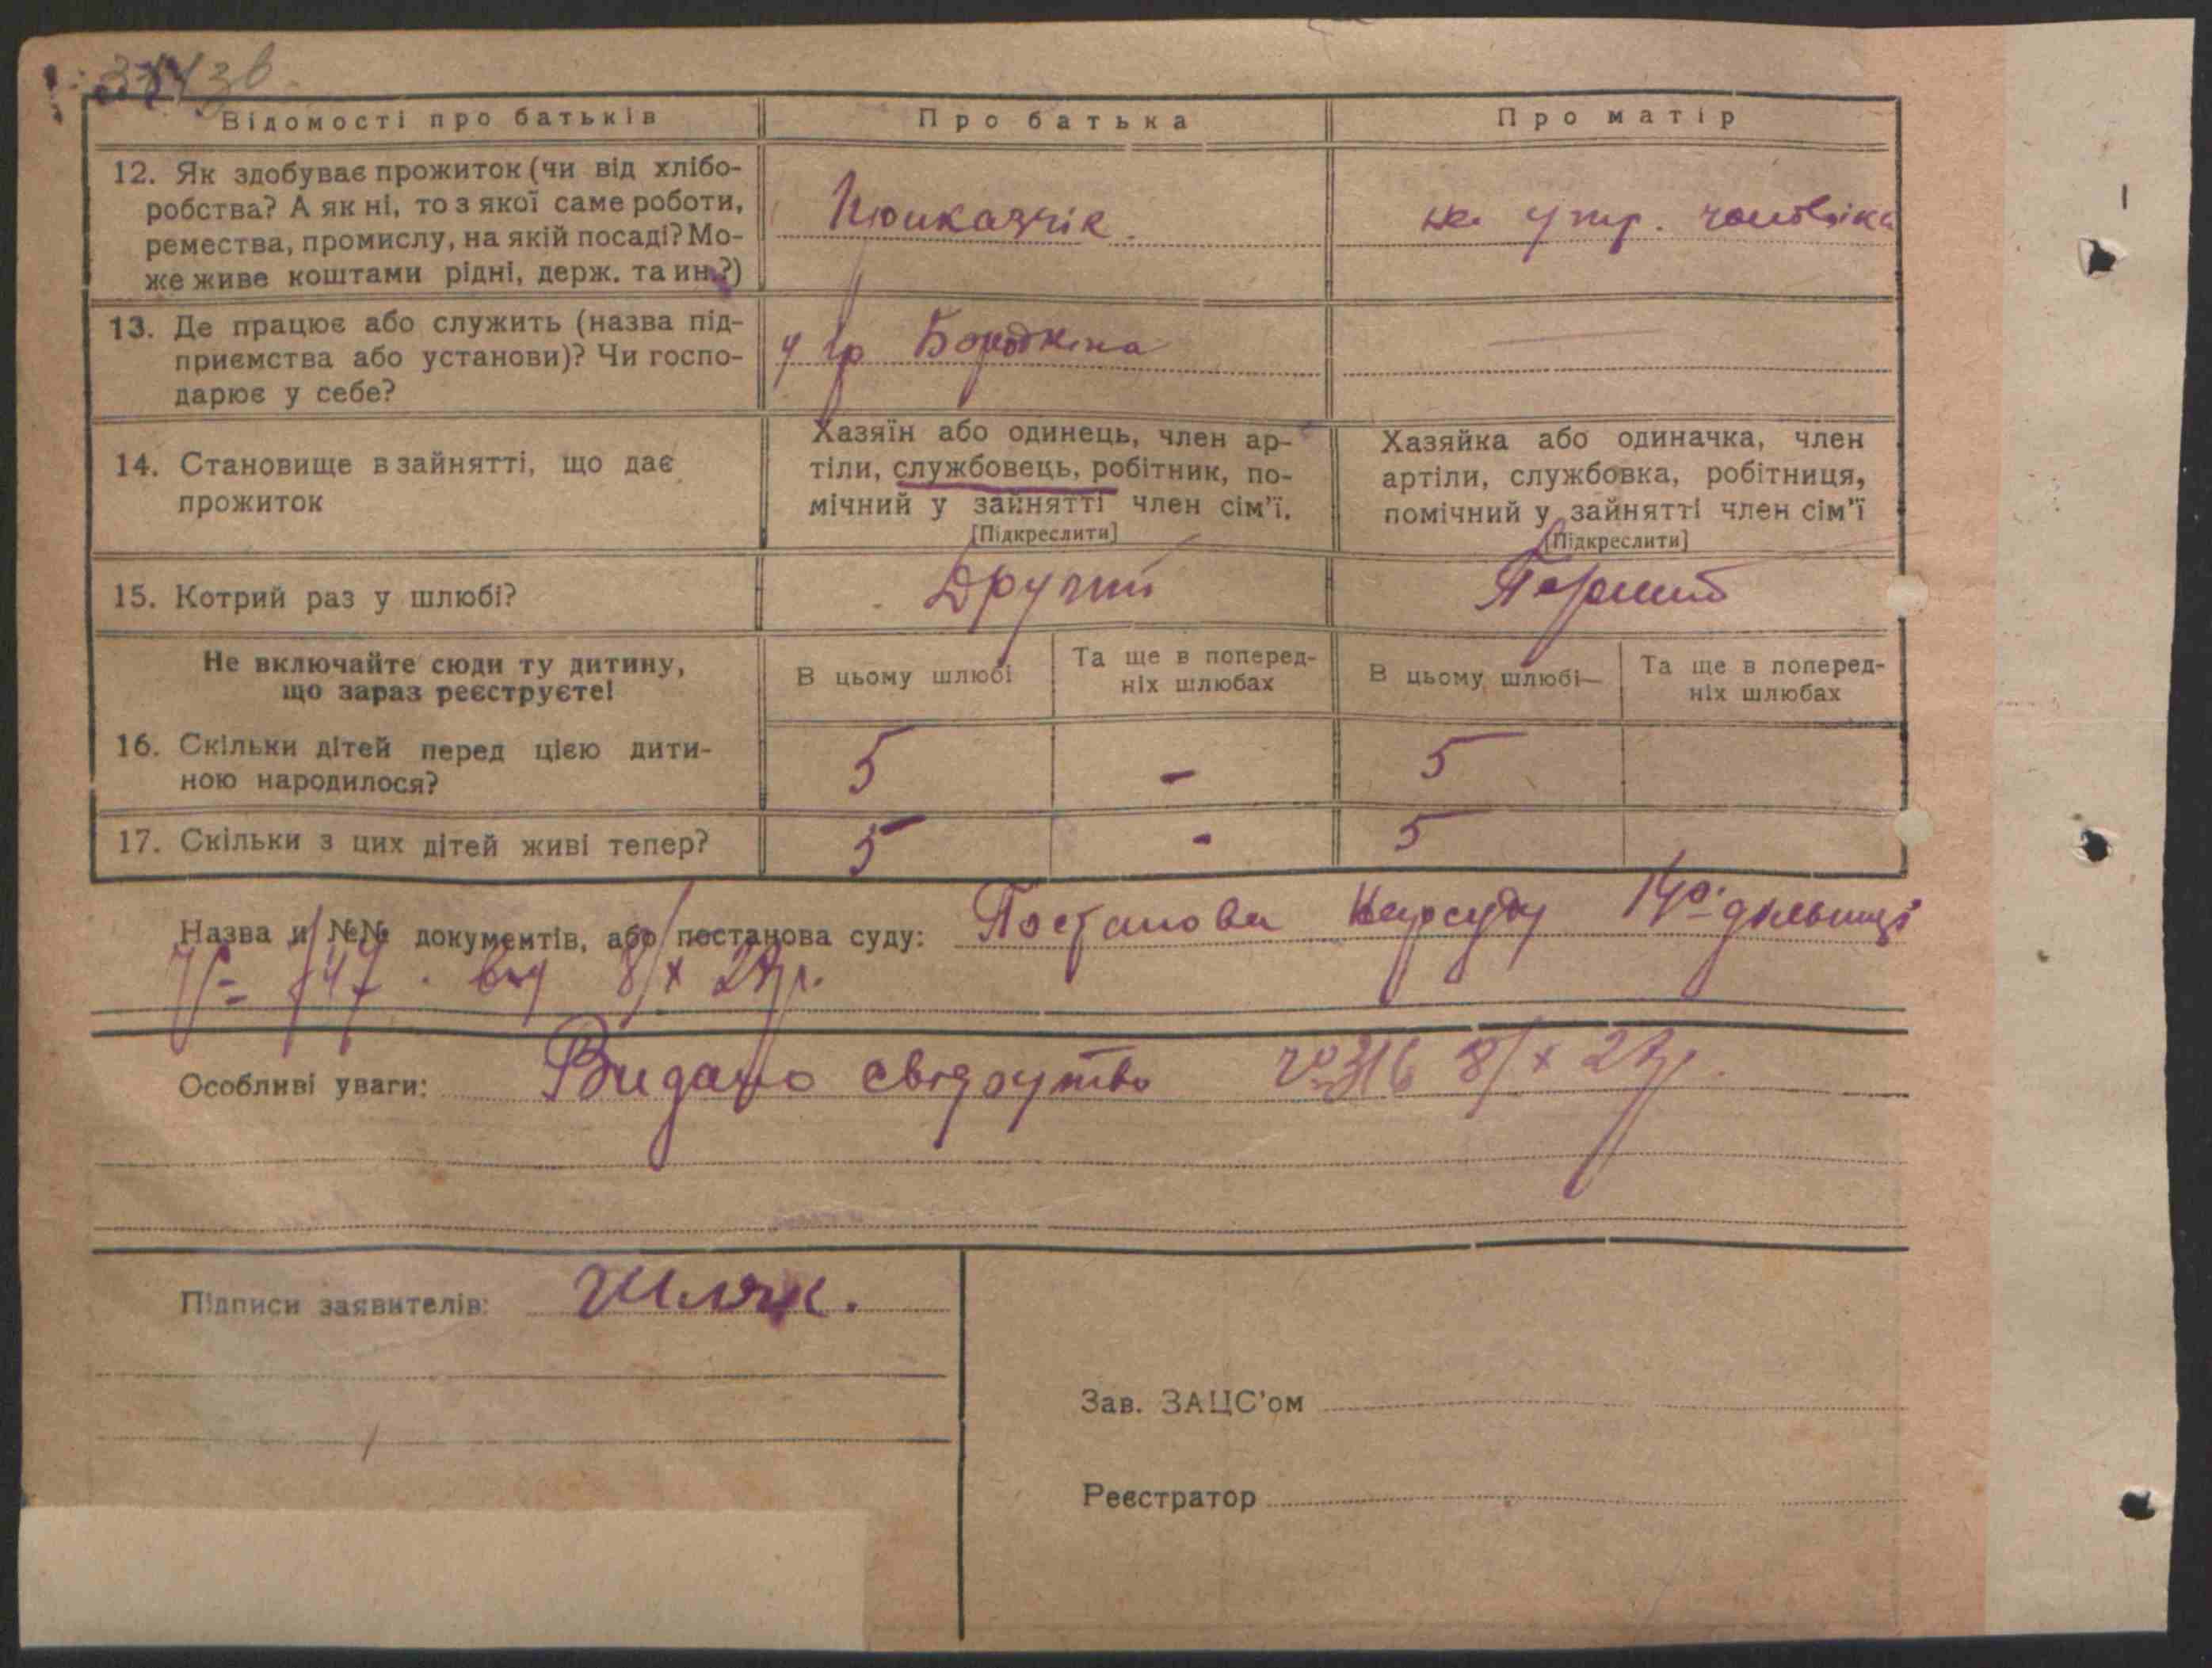 Відомості про батьків
Про батька
Про матір
12. Як здобуває прожиток (чи від хлібо-
робства? А як ні, то з якої саме роботи,
ремества, промислу, на якій посаді? Мо-
же живе коштами рідні, держ. та ин.?)
на утр. чоловіка
13. Де працює або служить (назва під-
приємства або установи)? Чи госпо-
дарює у себе?
у гр Бородкіна
14. Становище в зайнятті, що дає
прожиток
Хазяїн або одинець, член ар-
тіли, службовець, робітник, по-
мічний у зайнятті член сім'ї.
[Підкреслити]
Хазяйка або одиначка, член
артіли, службовка, робітниця,
помічний у зайнятті член сім'ї
[Підкреслити]
15. Котрий раз у шлюбі?
Другий
Перший
Не включайте сюди ту дитину,
що зараз реєструєте!
В цьому шлюбі
Та ще в поперед-
ніх шлюбах
В цьому шлюбі
Та ще в поперед-
ніх шлюбах
16. Скільки дітей перед цією дити-
ною народилося?
5
-
5
17. Скільки з цих дітей живі тепер?
5
-
5
Назва й №№ документів, або постанова суду: Постанова Нарсуду 14º дільниці
від 8/X
Особливі уваги: Видано свідоцтво № 316 8/X
Підписи заявителів:
Зав. ЗАЦС'ом
Реєстратор